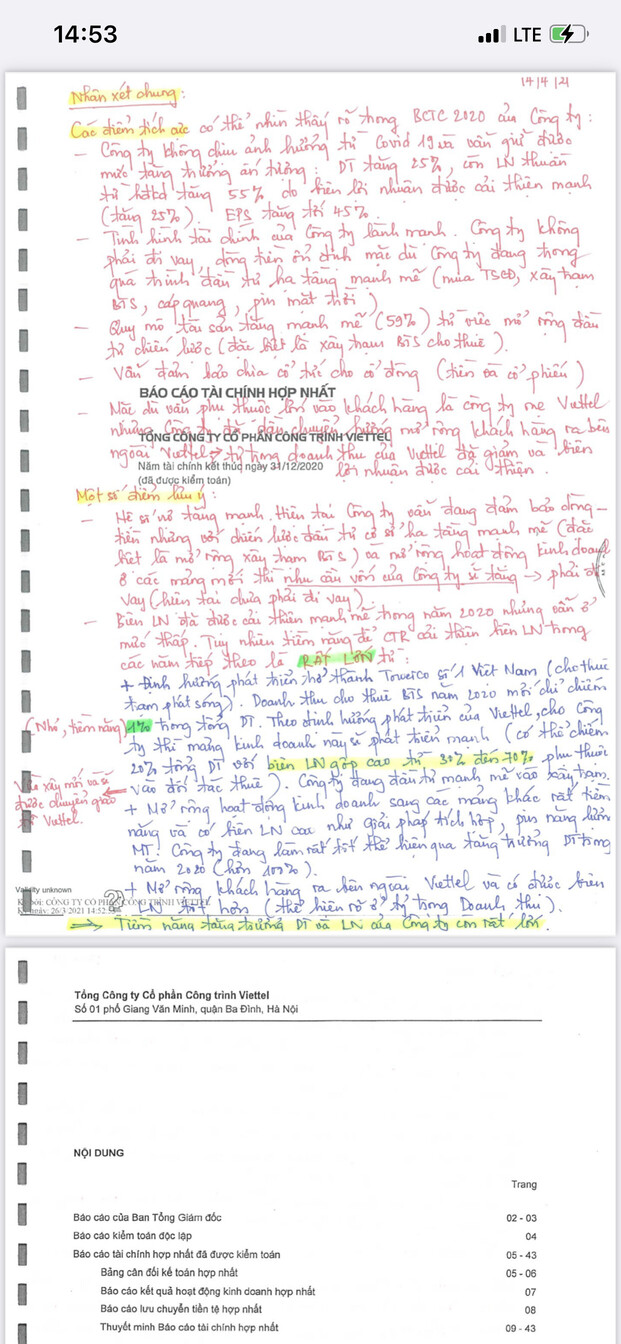 14:53
LTE
14/4/21
Nhận xét chung:
Các điểm tích cực có thể nhìn thấy rõ trong BCTC 2020 của Công ty:
- Công ty không chịu ảnh hưởng từ Covid 19 và vẫn giữ được
mức tăng trưởng ấn tượng: DT tăng 25%, còn LN thuần
từ hđkd tăng 55% do biên lợi nhuận được cải thiện mạnh
(tăng 25%). EPS tăng tới 45%
- Tình hình tài chính của Công ty lành mạnh. Công ty không
phải đi vay, dòng tiền ổn định mặc dù Công ty đang trong
quá trình đầu tư hạ tầng mạnh mẽ (mua TSCĐ, xây trạm
BTS, cáp quang, pin mặt trời)
- Quy mô tài sản tăng mạnh mẽ (59%) từ việc mở rộng đầu
tư chiến lược (đặc biệt là xây trạm BTS cho thuê).
- Vẫn đảm bảo chia cổ tức cho cổ đông (tiền và cổ phiếu)
BÁO CÁO TÀI CHÍNH HỢP NHẤT
- Mặc dù vẫn phụ thuộc lớn vào khách hàng là công ty mẹ Viettel
nhưng Công ty đã dần chuyển hướng mở rộng khách hàng ra bên
TỔNG CÔNG TY CỔ PHẦN CÔNG TRÌNH VIETTEL
ngoài Viettel → tỷ trọng doanh thu của Viettel đã giảm và biên
Năm tài chính kết thúc ngày 31/12/2020
lợi nhuận được cải thiện.
(đã được kiểm toán)
Một số điểm lưu ý:
- Hệ số nợ tăng mạnh. Hiện tại Công ty vẫn đang đảm bảo dòng
tiền nhưng với chiến lược đầu tư cơ sở hạ tầng mạnh mẽ (đặc
biệt là mở rộng xây trạm BTS) và mở rộng hoạt động kinh doanh
ở các mảng mới thì nhu cầu vốn của Công ty sẽ tăng → phải đi
vay (hiện tại chưa phải đi vay)
- Biên LN đã được cải thiện mạnh mẽ trong năm 2020 nhưng vẫn ở
mức thấp. Tuy nhiên tiềm năng để CTR cải thiện biên LN trong
các năm tiếp theo là RẤT LỚN từ:
+ Định hướng phát triển trở thành Towerco số 1 Việt Nam (cho thuê
trạm phát sóng). Doanh thu cho thuê BTS năm 2020 mới chỉ chiếm
(Nhỏ, tiềm năng) 1% trong tổng DT. Theo định hướng phát triển của Viettel, cho Công
ty thì mảng kinh doanh này sẽ phát triển mạnh (có thể chiếm
20% tổng DT với biên LN gộp cao từ 30% đến 70% phụ thuộc
vào đối tác thuê). Công ty đang đầu tư mạnh mẽ vào xây trạm.
xây mới và sẽ
được chuyển giao
từ Viettel.
+ Mở rộng hoạt động kinh doanh sang các mảng khác rất tiềm
năng và có biên LN cao như giải pháp tích hợp, pin năng lượng
MT. Công ty đang làm rất tốt thể hiện qua tăng trưởng DT trong
năm 2020 (hơn 100%).
+ Mở rộng khách hàng ra bên ngoài Viettel và có được biên
LN tốt hơn (thể hiện rõ ở tỷ trọng Doanh thu).
Validity unknown
Ký bởi: CÔNG TY CỔ PHẦN CÔNG TRÌNH VIETTEL
Ký ngày: 26/3/2021 14:52
⇒ Tiềm năng tăng trưởng DT và LN của Công ty còn rất lớn.
Tổng Công ty Cổ phần Công trình Viettel
Số 01 phố Giang Văn Minh, quận Ba Đình, Hà Nội
NỘI DUNG
Trang
Báo cáo của Ban Tổng Giám đốc 02 - 03
Báo cáo kiểm toán độc lập 04
Báo cáo tài chính hợp nhất đã được kiểm toán 05 - 43
Bảng cân đối kế toán hợp nhất 05 - 06
Báo cáo kết quả hoạt động kinh doanh hợp nhất 07
Báo cáo lưu chuyển tiền tệ hợp nhất 08
Thuyết minh Báo cáo tài chính hợp nhất 09 - 43